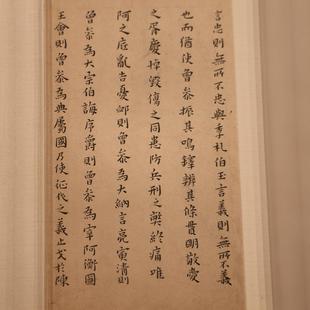 言忠則無所不忠與季札伯玉言義則無所不義
也而猶使曾參振其鳴鐸辨其條貫明敬愛
之深慶掉毀傷之同患防兵刑之興終痛唯
阿之底亂言憂邮則曾參為大納言亮寅清則
曾參為大宗伯誨序爵則曾參為宰阿衡圖
王會則曾參為典屬國乃使征伐之義止戈於陳